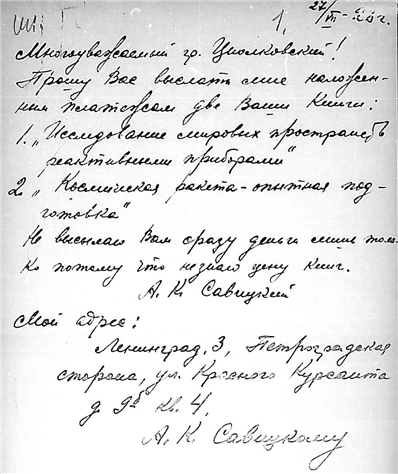 1.
27/VII-28г.
Многоуважаемый гр. Циолковский!
Прошу Вас выслать мне наложен-
ным платежом две Ваши Книги:
1. „Исследование мировых пространств
реактивными приборами"
2. „Космическая ракета-опытная под-
готовка"
Не высылаю Вам сразу деньги лишь толь-
ко потому что незнаю цену книг.
А. К. Савицкий
Мой адрес:
Ленинград, 3, Петроградская
сторона, ул. Красного Курсанта
д. 9б кв. 4.
А. К. Савицкому